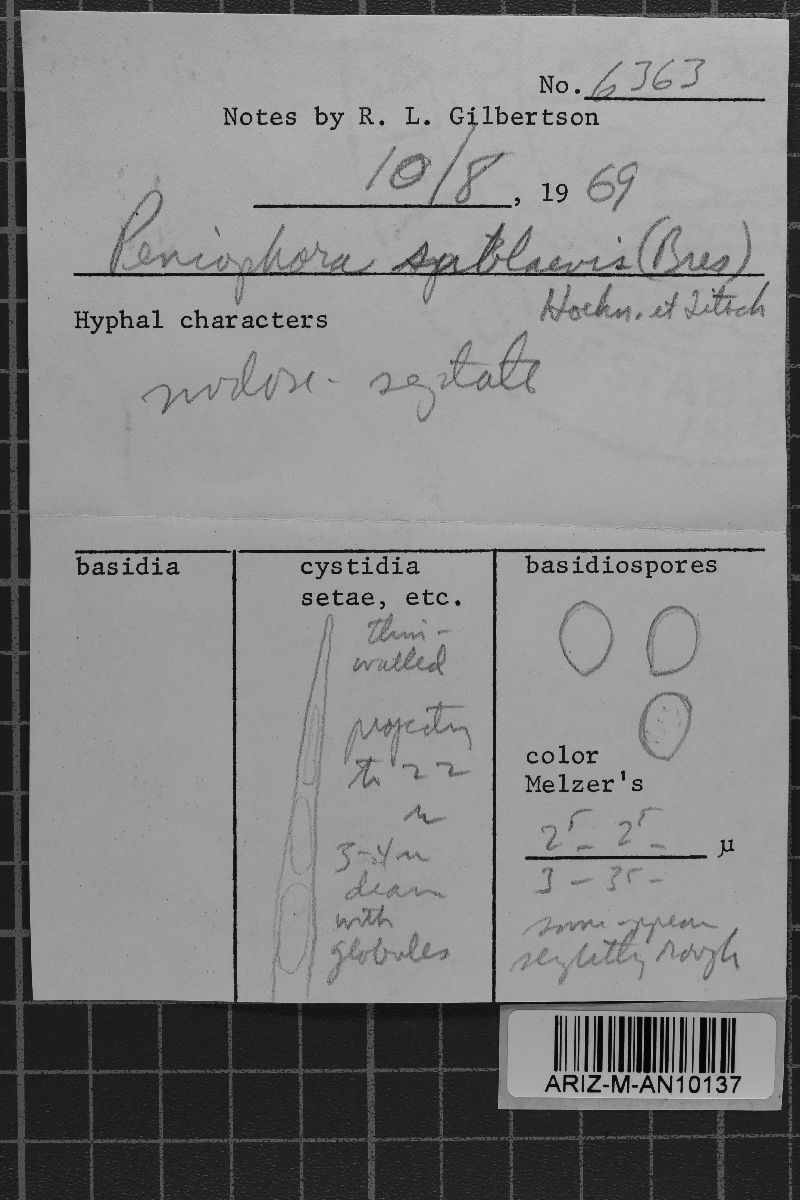 No. 6363
Notes by R. L. Gilbertson
10/8, 19 69
Peniophora sublaevis (Bres)
Hoehn. et Litsch
Hyphal characters
nodose-septate
basidia
cystidia
setae, etc.
thin-
walled
projecting
to 22
μ
3-4 μ
diam
with
globules
basidiospores
color
Melzer's
25- 25- μ
3 - 35-
some appear
slightly rough
ARIZ-M-AN10137